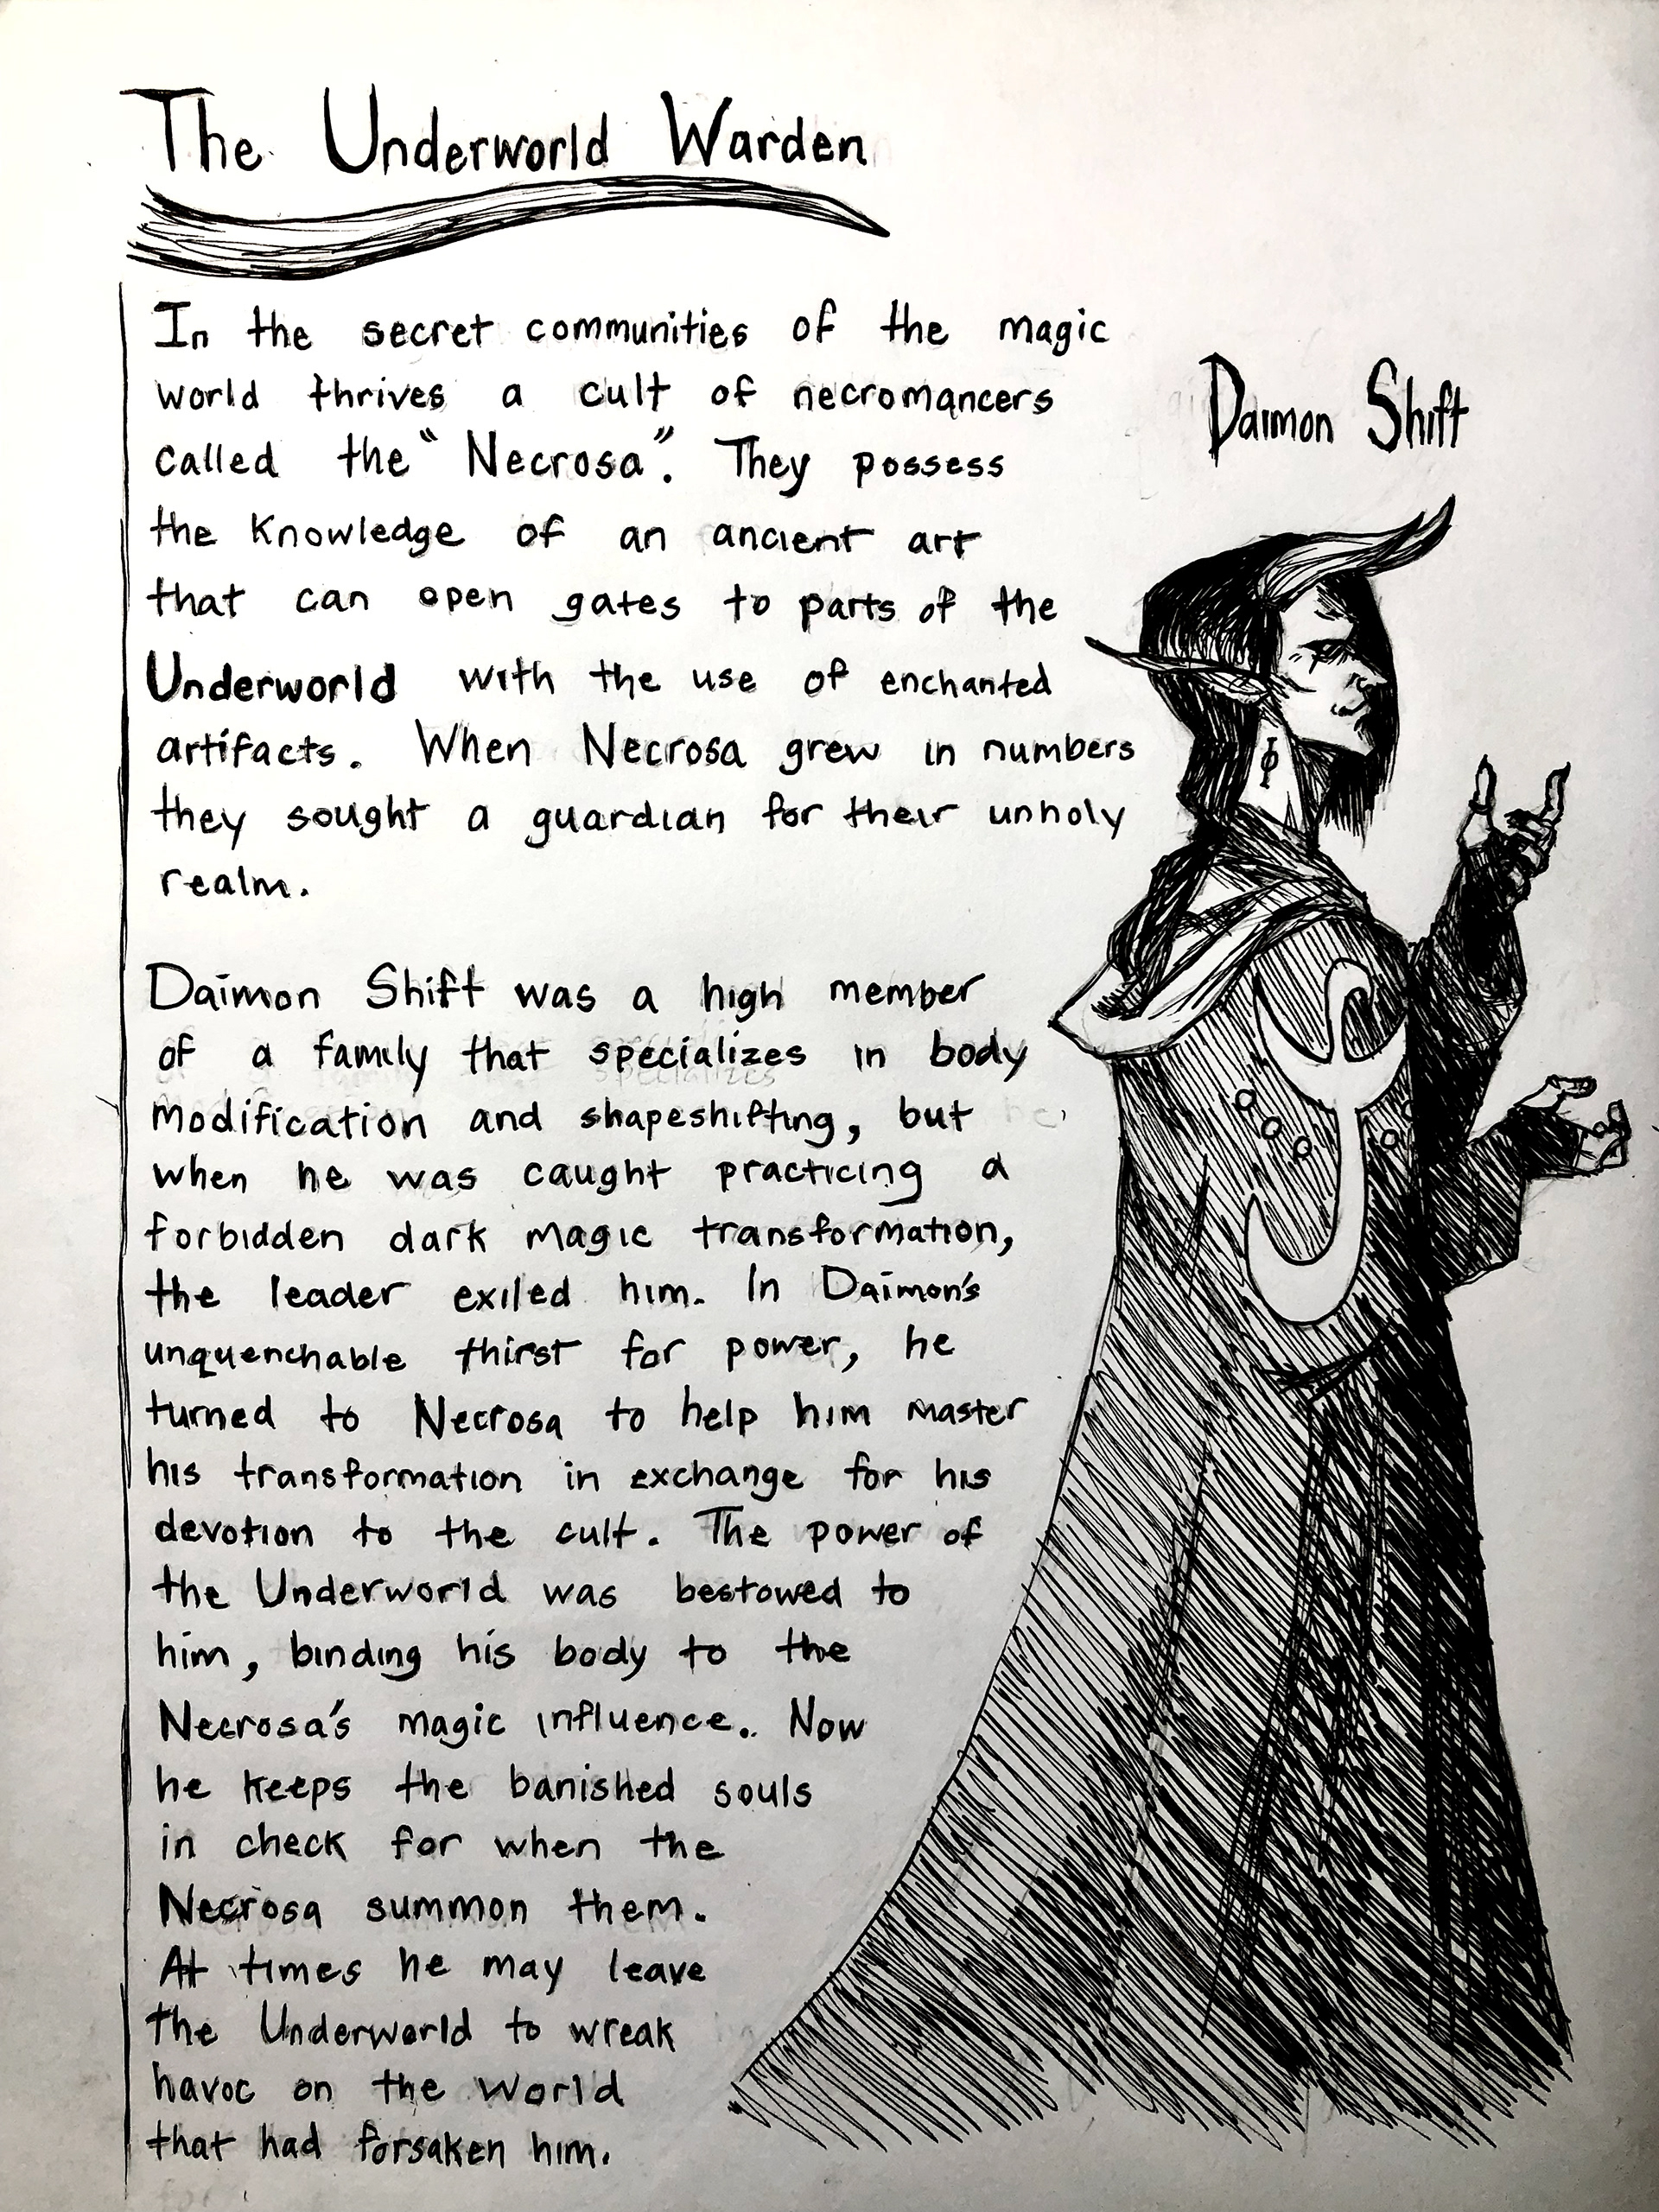 The Underworld Warden
In the secret communities of the magic
world thrives a cult of necromancers
called the "Necrosa". They possess
the knowledge of an ancient art
that can open gates to parts of the
Underworld with the use of enchanted
artifacts. When Necrosa grew in numbers
they sought a guardian for their unholy
realm.
Daimon Shift was a high member
of a family that specializes in body
modification and shapeshifting, but
when he was caught practicing a
forbidden dark magic transformation,
the leader exiled him. In Daimon's
unquenchable thirst for power, he
turned to Necrosa to help him master
his transformation in exchange for his
devotion to the cult. The power of
the Underworld was bestowed to
him, binding his body to the
Necrosa's magic influence.. Now
he keeps the banished souls
in check for when the
Necrosa summon them.
At times he may leave
the Underworld to wreak
havoc on the world
that had forsaken him.
Daimon Shift